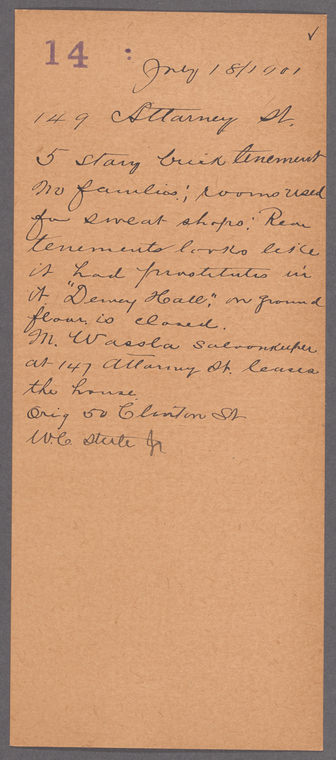 14 :
July 18/1901
149 Attorney St.
5 story brick tenement
No families; rooms used
for sweat shops. Rear
tenements looks like
it had prostitutes in
it. "Dewey Hall", on ground
floor is closed.
M. Wassla saloonkeeper
at 147 Attorney St. leases
the house.
Orig 50 Clinton St
W.C. Steele Jr